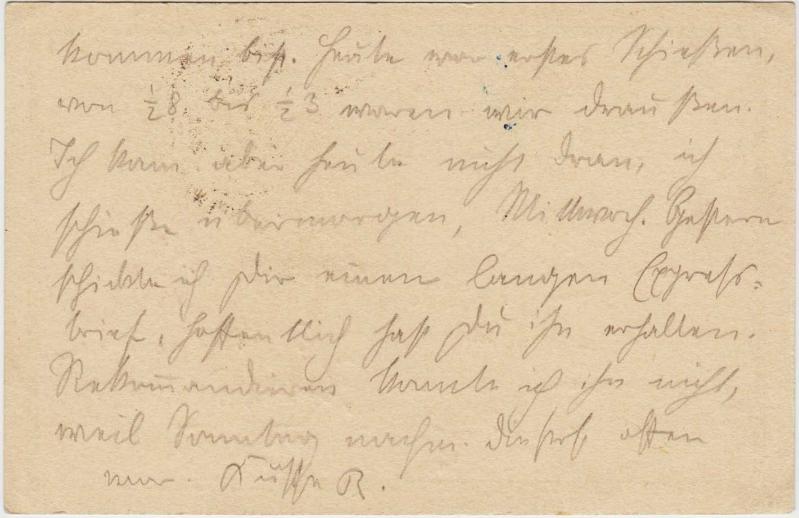 kommen bist. Heute war erstes Schießen,
von ½8 bis ½3 waren wir draußen.
Ich kam aber heute nicht dran, ich
schieße übermorgen, Mittwoch. Gestern
schickte ich Dir einen langen Express-
brief, hoffentlich hast Du ihn erhalten.
Rekommandieren konnte ich ihn nicht,
weil Sonntag nachm. offen
war. Küsse R.